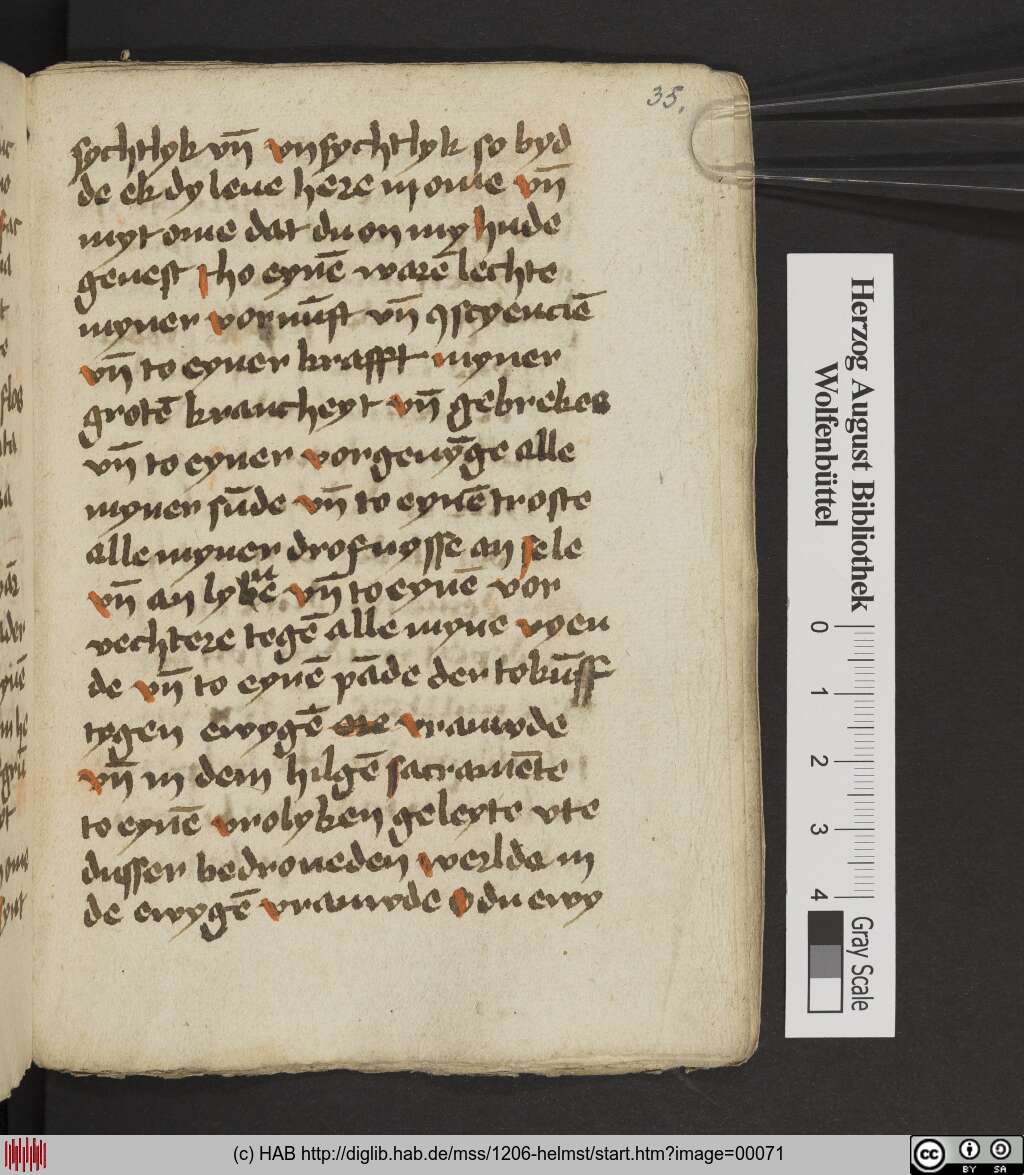 35.
sychtlyk vn̄ vnsychtlyk so byd
de ek dy leue here in ome vn̄
myt ome dat du on my hude
geuest tho eynē warē lechte
myner vornūft vn̄ ꝯscyenciē
vn̄ to eyner krafft myner
grotē krancheyt vn̄ gebrekes
vn̄ to eyner vorgeuȳge alle
myner sūde vn̄ to eynē troste
alle myner drofnysse an sele
vn̄ an lyuē vn̄ to eynē vor
vechtere tegē alle myne vyen
de vn̄ to eynē pāde der tokūff
tygen ewygē vrauwde
vn̄ in dem hilgē sacramēte
to eynē vrolyken geleyte vte
dusser bedroueden werlde in
de ewygē vrauwde O du ewy
Herzog August Bibliothek
Wolfenbüttel
0 1 2 3 4
Gray Scale
(c) HAB http://diglib.hab.de/mss/1206-helmst/start.htm?image=00071
cc BY SA